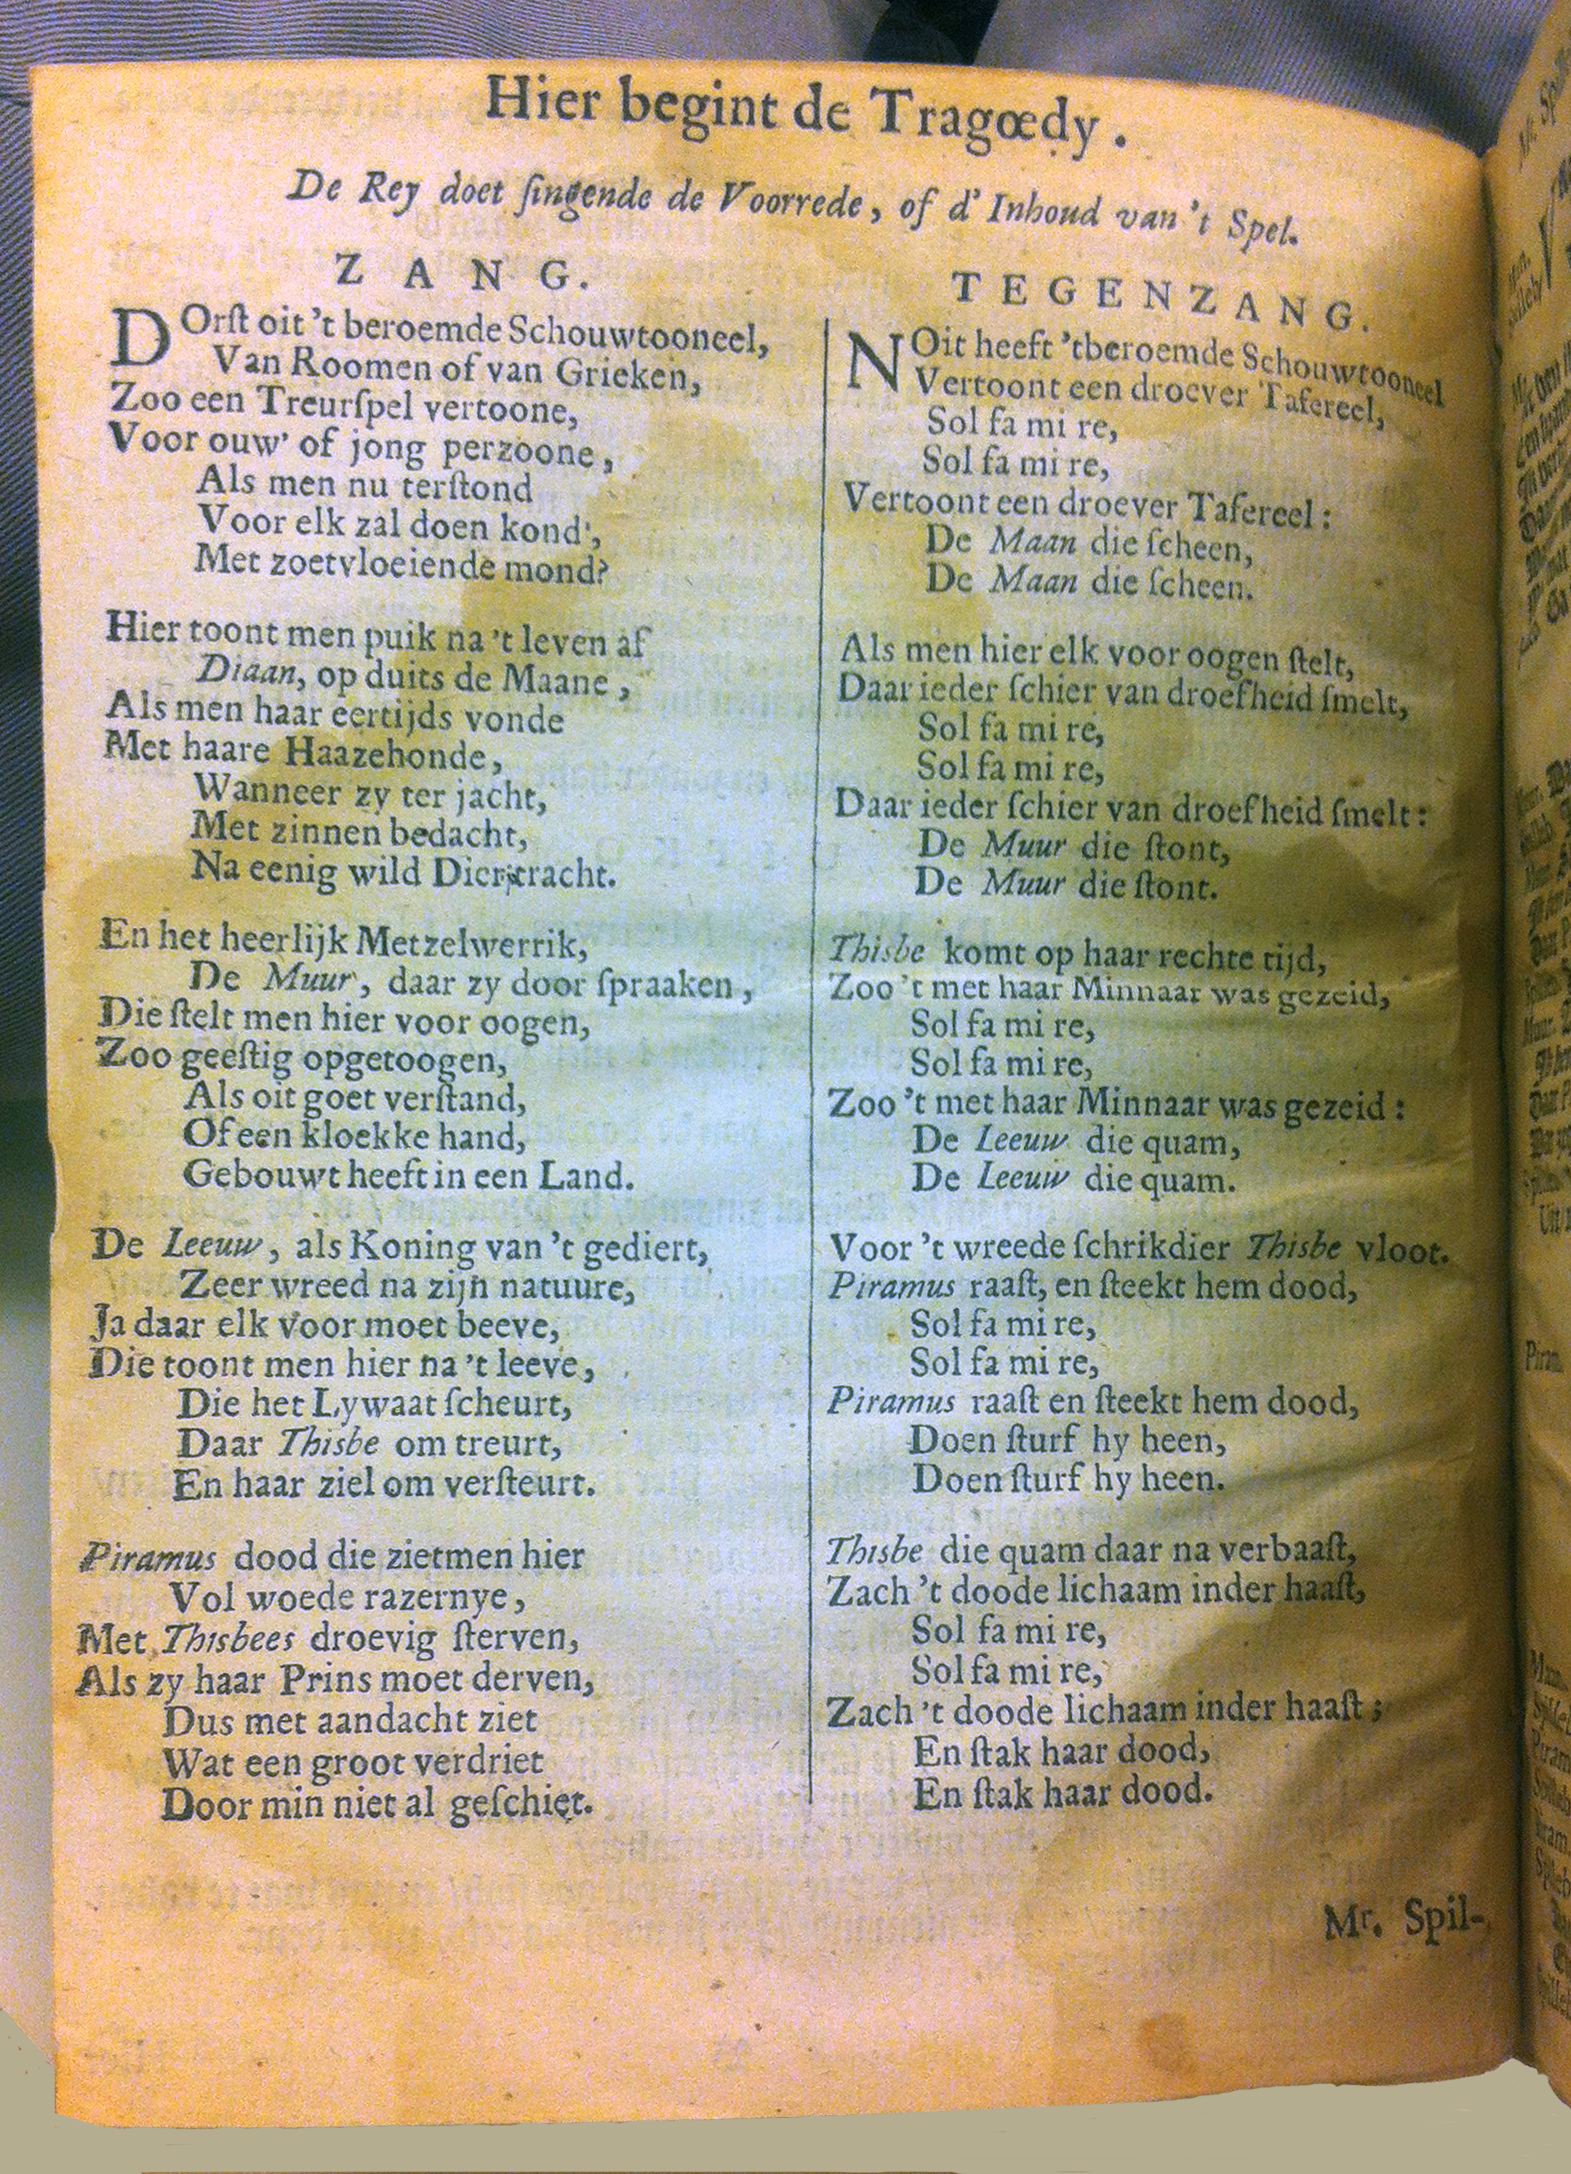 Hier begint de Tragœdy.
De Rey doet ſingende de Voorrede, of d' Inhoud van 't Spel.
ZANG.
DOrſt oit 't beroemde Schouwtooneel,
Van Roomen of van Grieken,
Zoo een Treurſpel vertoone,
Voor ouw' of jong perzoone,
Als men nu terſtond
Voor elk zal doen kond',
Met zoetvloeiende mond?
Hier toont men puik na 't leven af
Diaan, op duits de Maane,
Als men haar eertijds vonde
Met haare Haazehonde,
Wanneer zy ter jacht,
Met zinnen bedacht,
Na eenig wild Dier tracht.
En het heerlijk Metzelwerrik,
De Muur, daar zy door ſpraaken,
Die ſtelt men hier voor oogen,
Zoo geeſtig opgetoogen,
Als oit goet verſtand,
Of een kloekke hand,
Gebouwt heeft in een Land.
De Leeuw, als Koning van 't gediert,
Zeer wreed na zijn natuure,
Ja daar elk voor moet beeve,
Die toont men hier na 't leeve,
Die het Lywaat ſcheurt,
Daar Thisbe om treurt,
En haar ziel om verſteurt.
Piramus dood die zietmen hier
Vol woede razernye,
Met Thisbees droevig ſterven,
Als zy haar Prins moet derven,
Dus met aandacht ziet
Wat een groot verdriet
Door min niet al geſchiet.
TEGENZANG.
NOit heeft 'tberoemde Schouwtooneel
Vertoont een droever Tafereel,
Sol fa mi re,
Sol fa mi re,
Vertoont een droever Tafereel:
De Maan die ſcheen,
De Maan die ſcheen.
Als men hier elk voor oogen ſtelt,
Daar ieder ſchier van droefheid ſmelt,
Sol fa mi re,
Sol fa mi re,
Daar ieder ſchier van droefheid ſmelt:
De Muur die ſtont,
De Muur die ſtont.
Thisbe komt op haar rechte tijd,
Zoo 't met haar Minnaar was gezeid,
Sol fa mi re,
Sol fa mi re,
Zoo 't met haar Minnaar was gezeid:
De Leeuw die quam,
De Leeuw die quam.
Voor 't wreede ſchrikdier Thisbe vloot.
Piramus raaſt, en ſteekt hem dood,
Sol fa mi re,
Sol fa mi re,
Piramus raaſt en ſteekt hem dood,
Doen ſturf hy heen,
Doen ſturf hy heen.
Thisbe die quam daar na verbaaſt,
Zach 't doode lichaam inder haaſt,
Sol fa mi re,
Sol fa mi re,
Zach 't doode lichaam inder haaſt;
En ſtak haar dood,
En ſtak haar dood.
Mr. Spil-